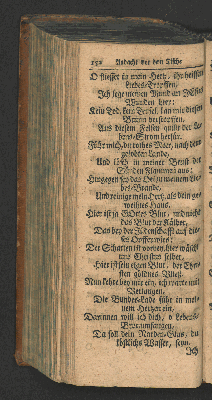 152 Andacht vor dem Tische
O fliesset in mein Hertz, ihr heissen
Liebes-Tropffen,
Ich lege meinen Mund an JEsus
Wunden hier:
Kein Tod, kein Teufel, kan mir diesen
Brunn verstopffen,
Aus diesem Felsen quillt der Lebens-Strom
herfür.
Führt mich, du rothes Meer, nach dem
gelobten Lande,
Und lösch in meiner Brust der
Sünden Flammen aus:
Hingegen sey das Oel zu meinem Liebes-Brande,
Und reinige mein Hertz, als dein geweihtes
Haus.
Hier ist ja GOttes Blut, und nicht
das Blut der Kälber,
Das bey der Jüdenschafft auf dieses
Opffer wies:
Der Schatten ist vorbey, hier wäscht
uns Christus selber,
Hier ist sein eigen Blut, der Christen
göldnes Vließ.
Nun kehre bey mir ein, ich warte mit
Verlangen,
Die Bundes-Lade führ in meinem
Hertzen ein,
Darinnen will ich dich, o Lebens-
Brod umfangen,
Da soll dein Marter-Blut, du
köstlichs Wasser, seyn.
Ich